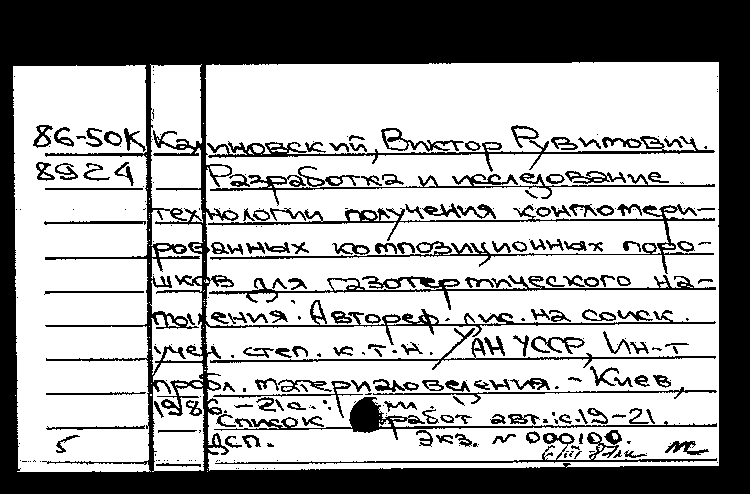 86-50К Калиновский, Виктор Рувимович.
8924 Разработка и исследование
технологии получения конгломери-
рованных композиционных поро-
шков для газотермического на-
пыления: Автореф. дис. на соиск.
учен. степ. к.т.н. / АН УССР, Ин-т
пробл. материаловедения. - Киев,
1986. - 21 с.:
Список работ авт.: с.19-21.
5 Дсп. Экз. N 000100.